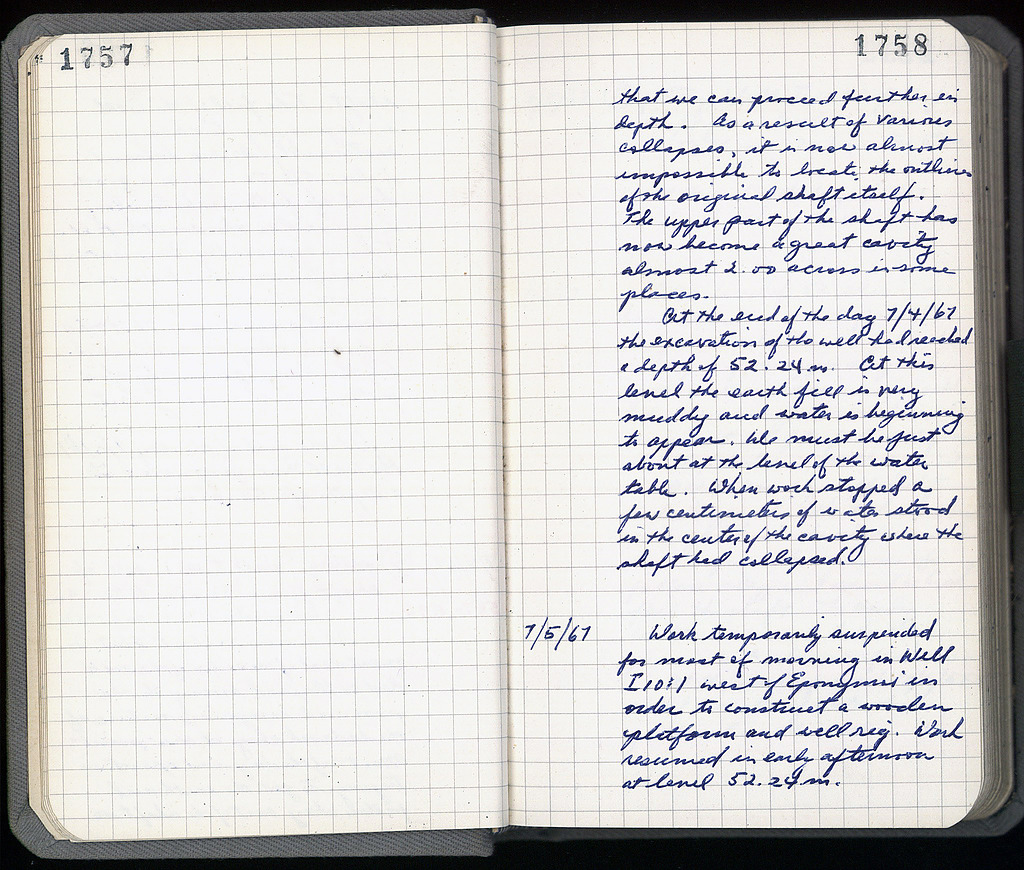 1757
1758
that we can proceed further in
depth. As a result of various
collapses, it is now almost
impossible to locate the outlines
of the original shaft itself.
The upper part of the shaft has
now become a great cavity
almost 2.00 across in some
places.
At the end of the day 7/4/67
the excavation of the well had reached
a depth of 52.24 m. At this
level the earth fill is very
muddy and water is beginning
to appear. We must be just
about at the level of the water
table. When work stopped a
few centimeters of water stood
in the center of the cavity where the
shaft had collapsed.
7/5/67 Work temporarily suspended
for most of morning in Well
I 10:1 west of Eponymoi in
order to construct a wooden
platform and well rig. Work
resumed in early afternoon
at level 52.24 m.